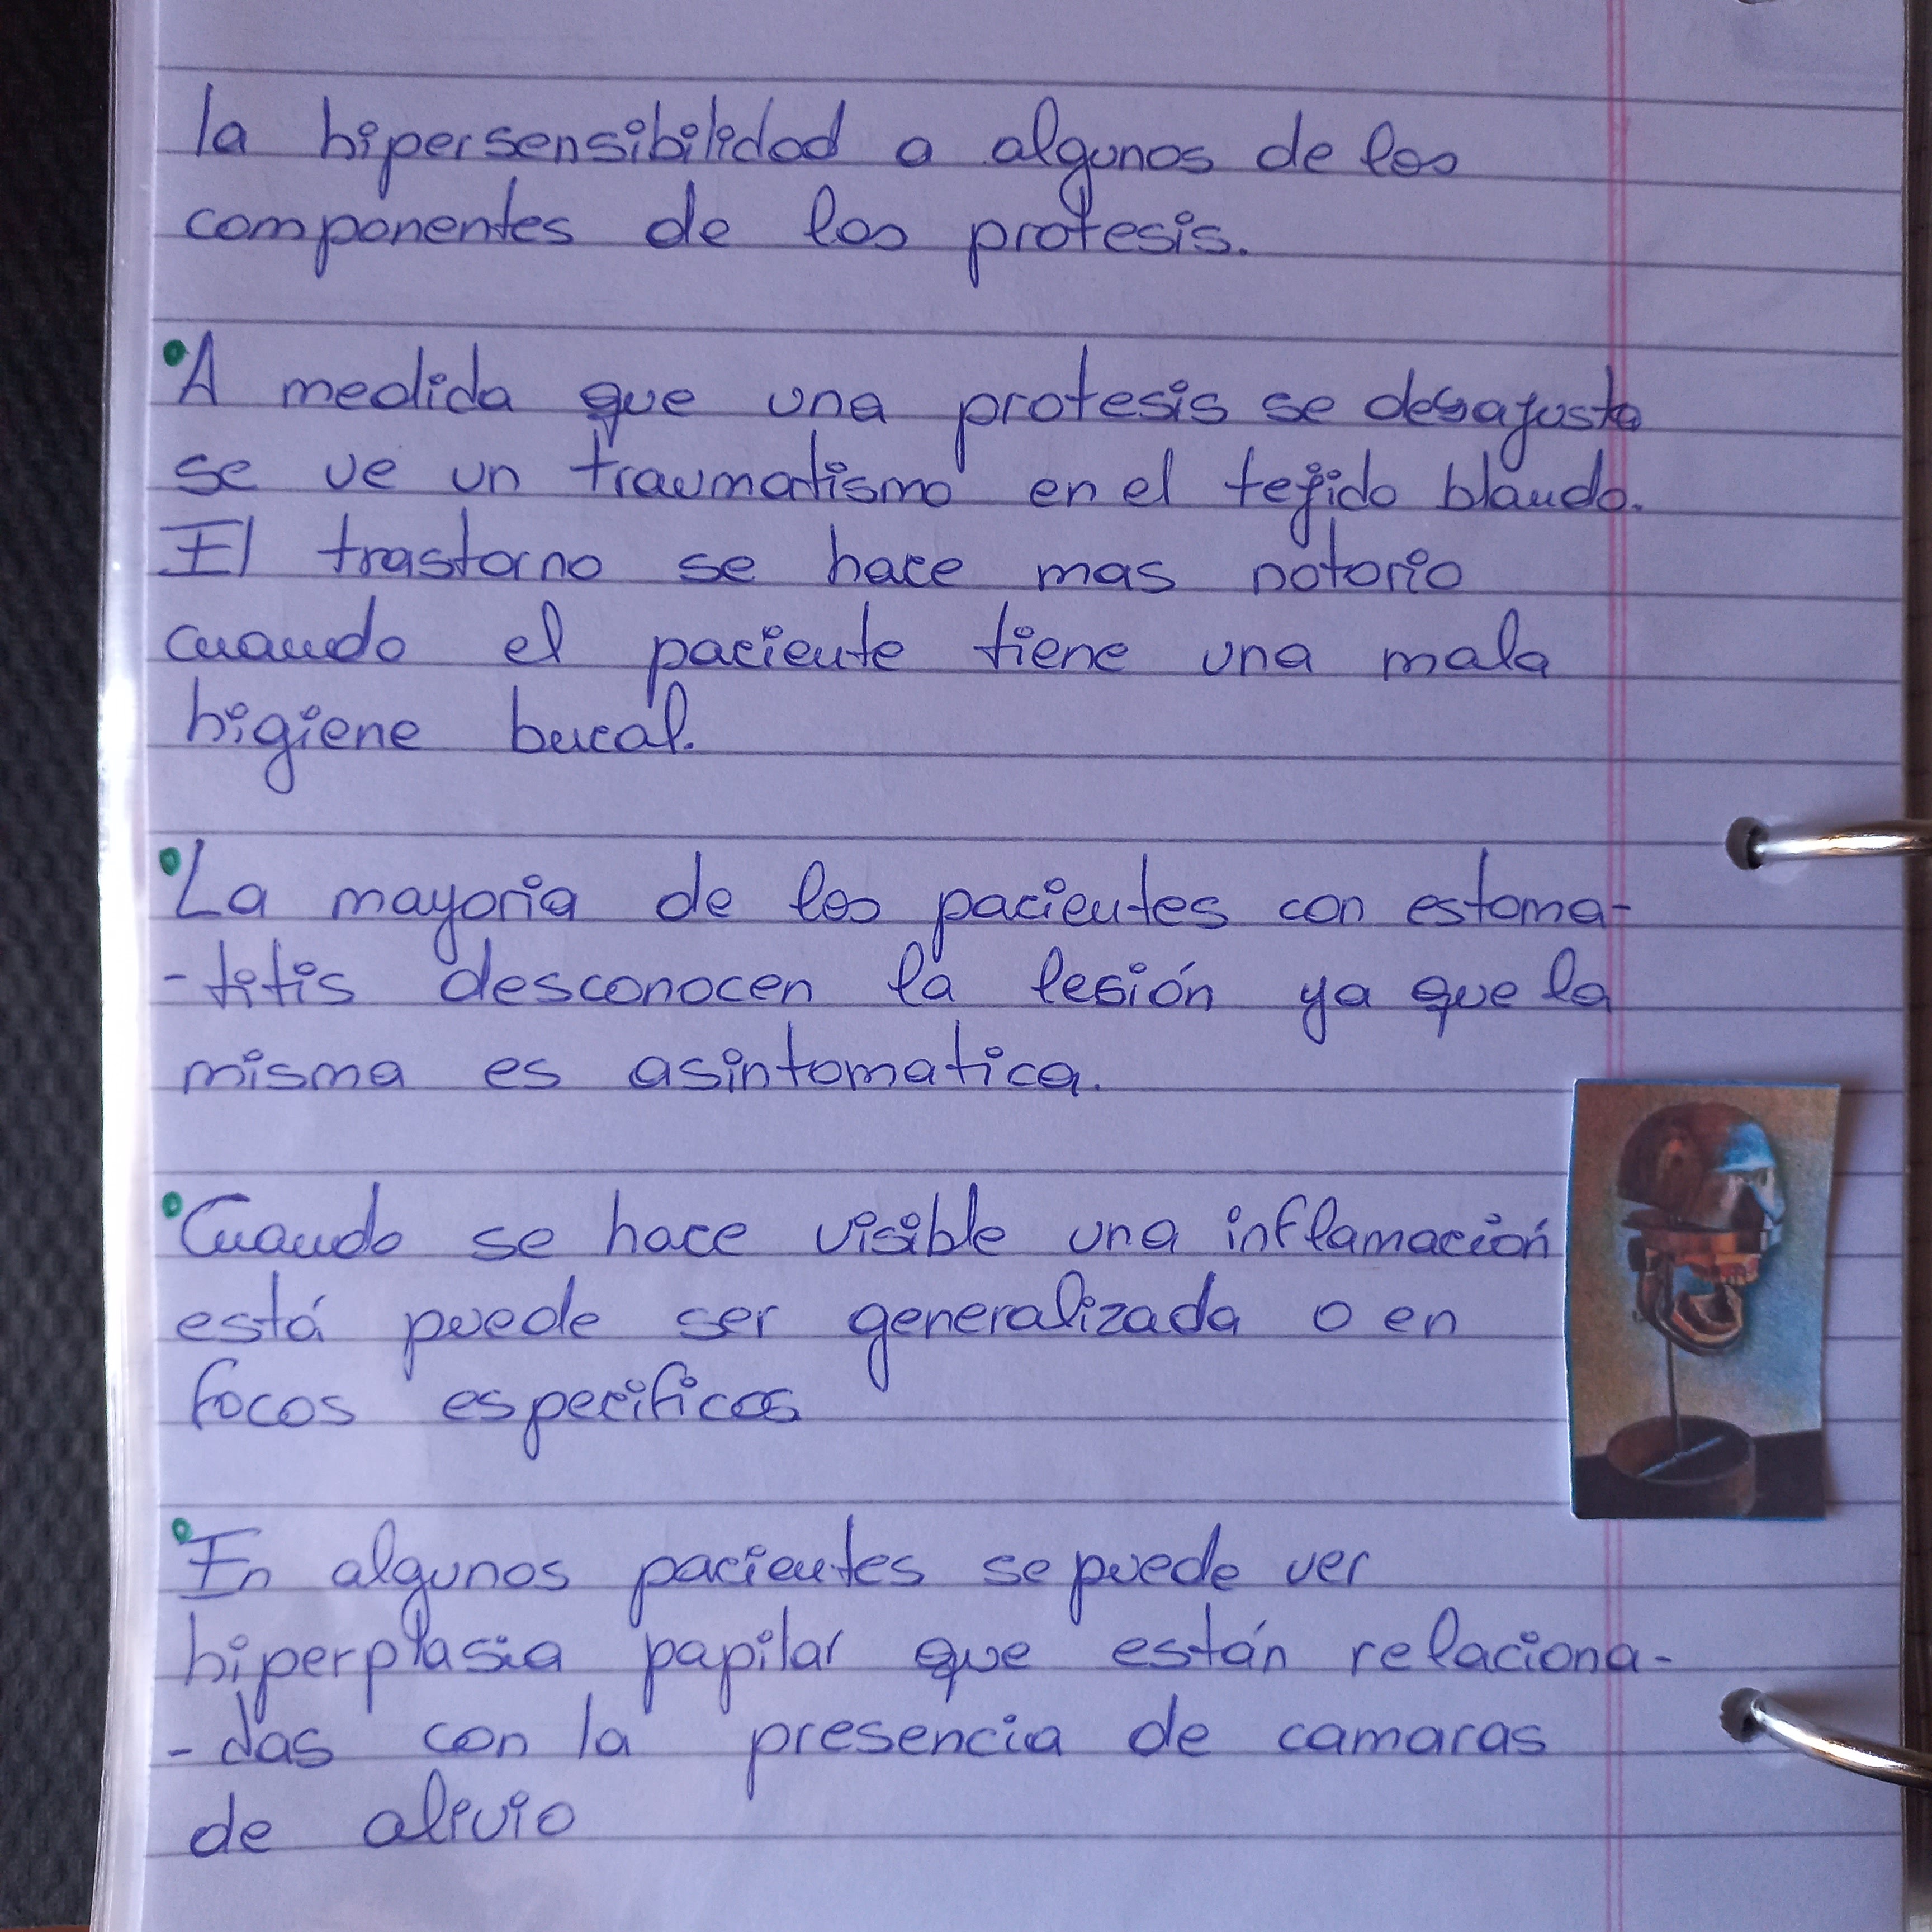 la hipersensibilidad a algunos de los
componentes de las protesis.
•A medida que una protesis se desajusta
se ve un traumatismo en el tejido blando.
El trastorno se hace mas notorio
cuando el paciente tiene una mala
higiene bucal.
•La mayoria de los pacientes con estoma-
-titis desconocen la lesión ya que la
misma es asintomatica.
•Cuando se hace visible una inflamación
está puede ser generalizada o en
focos especificos
•En algunos pacientes se puede ver
hiperplasia papilar que están relaciona-
-das con la presencia de camaras
de alivio